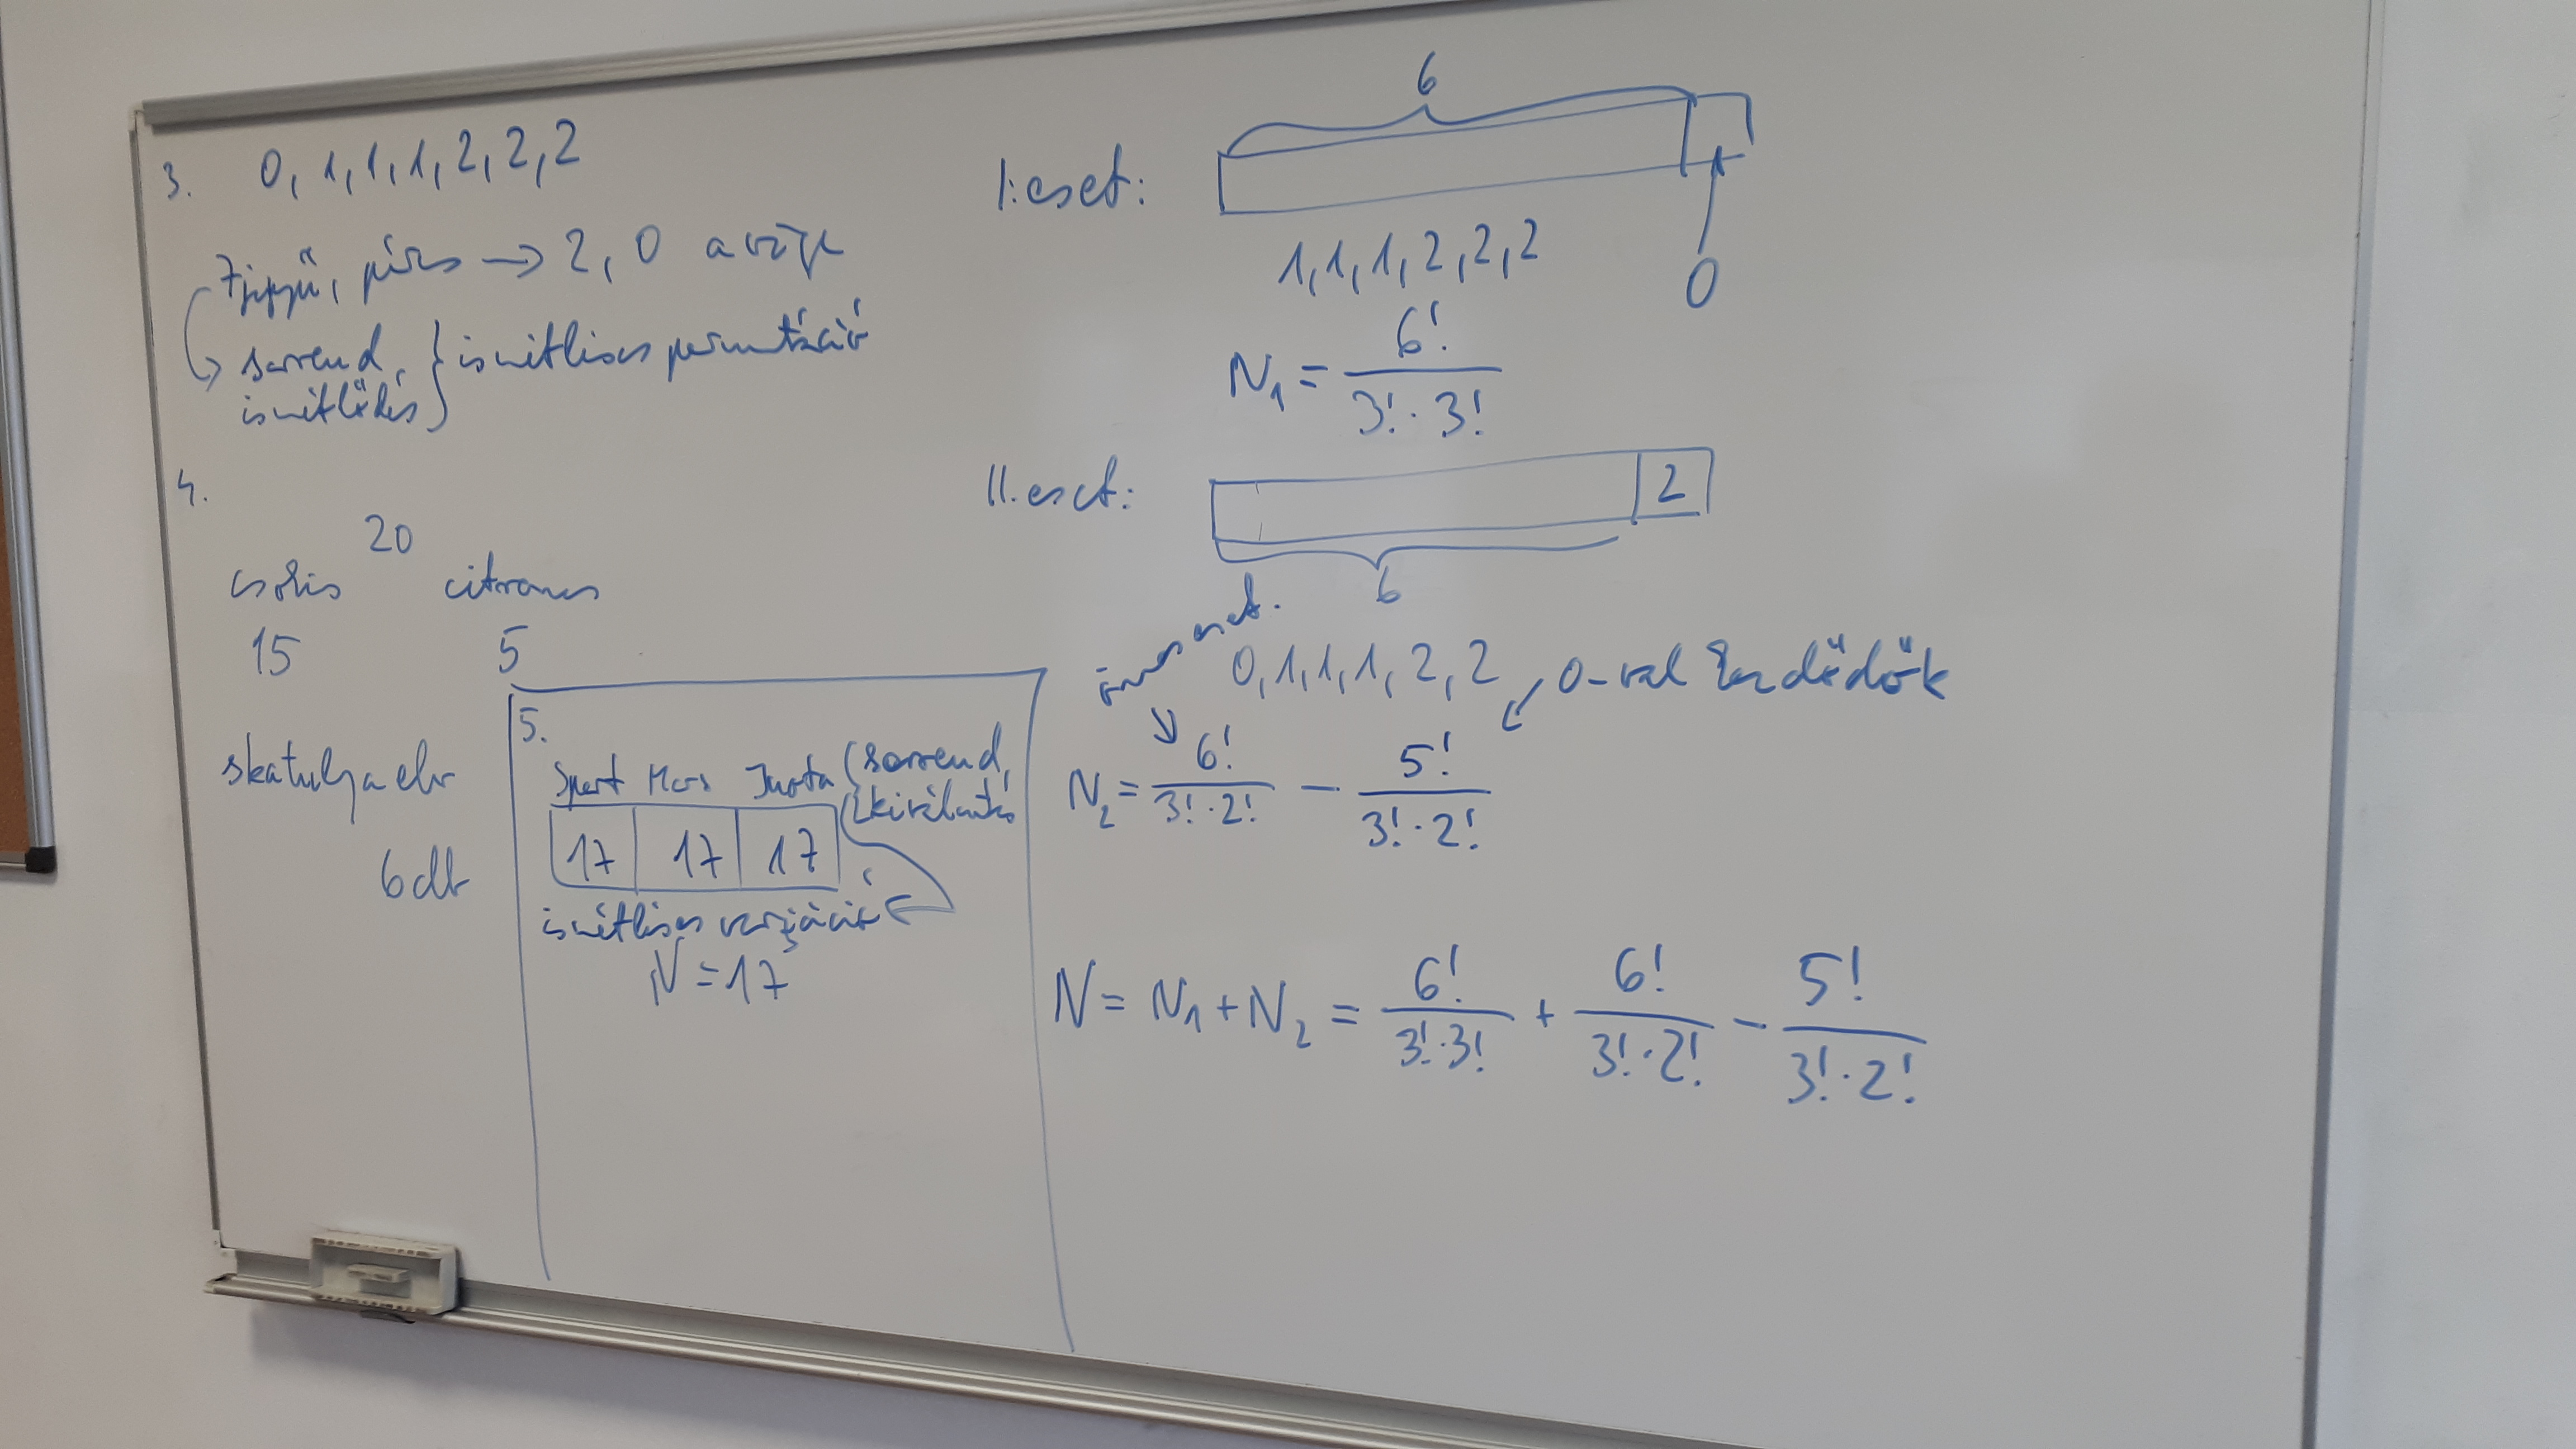 3. 0, 1, 1, 1, 2, 2, 2
7 jegyű, páros → 2, 0 a vége
sorrend,
ismétlődés } ismétléses permutáció
4.
20
csokis citromos
15 5
skatulya elv
6 db
5.
Sport Mars Twota
{ sorrend,
kiválasztás
17 17 17
ismétléses variáció
N = 17
I. eset:
6
1, 1, 1, 2, 2, 2
0
N₁ = 6! / (3! · 3!)
II. eset:
2
6
összes eset.
0, 1, 1, 1, 2, 2
0-val kezdődők
N₂ = 6! / (3! · 2!) − 5! / (3! · 2!)
N = N₁ + N₂ = 6! / (3! · 3!) + 6! / (3! · 2!) − 5! / (3! · 2!)